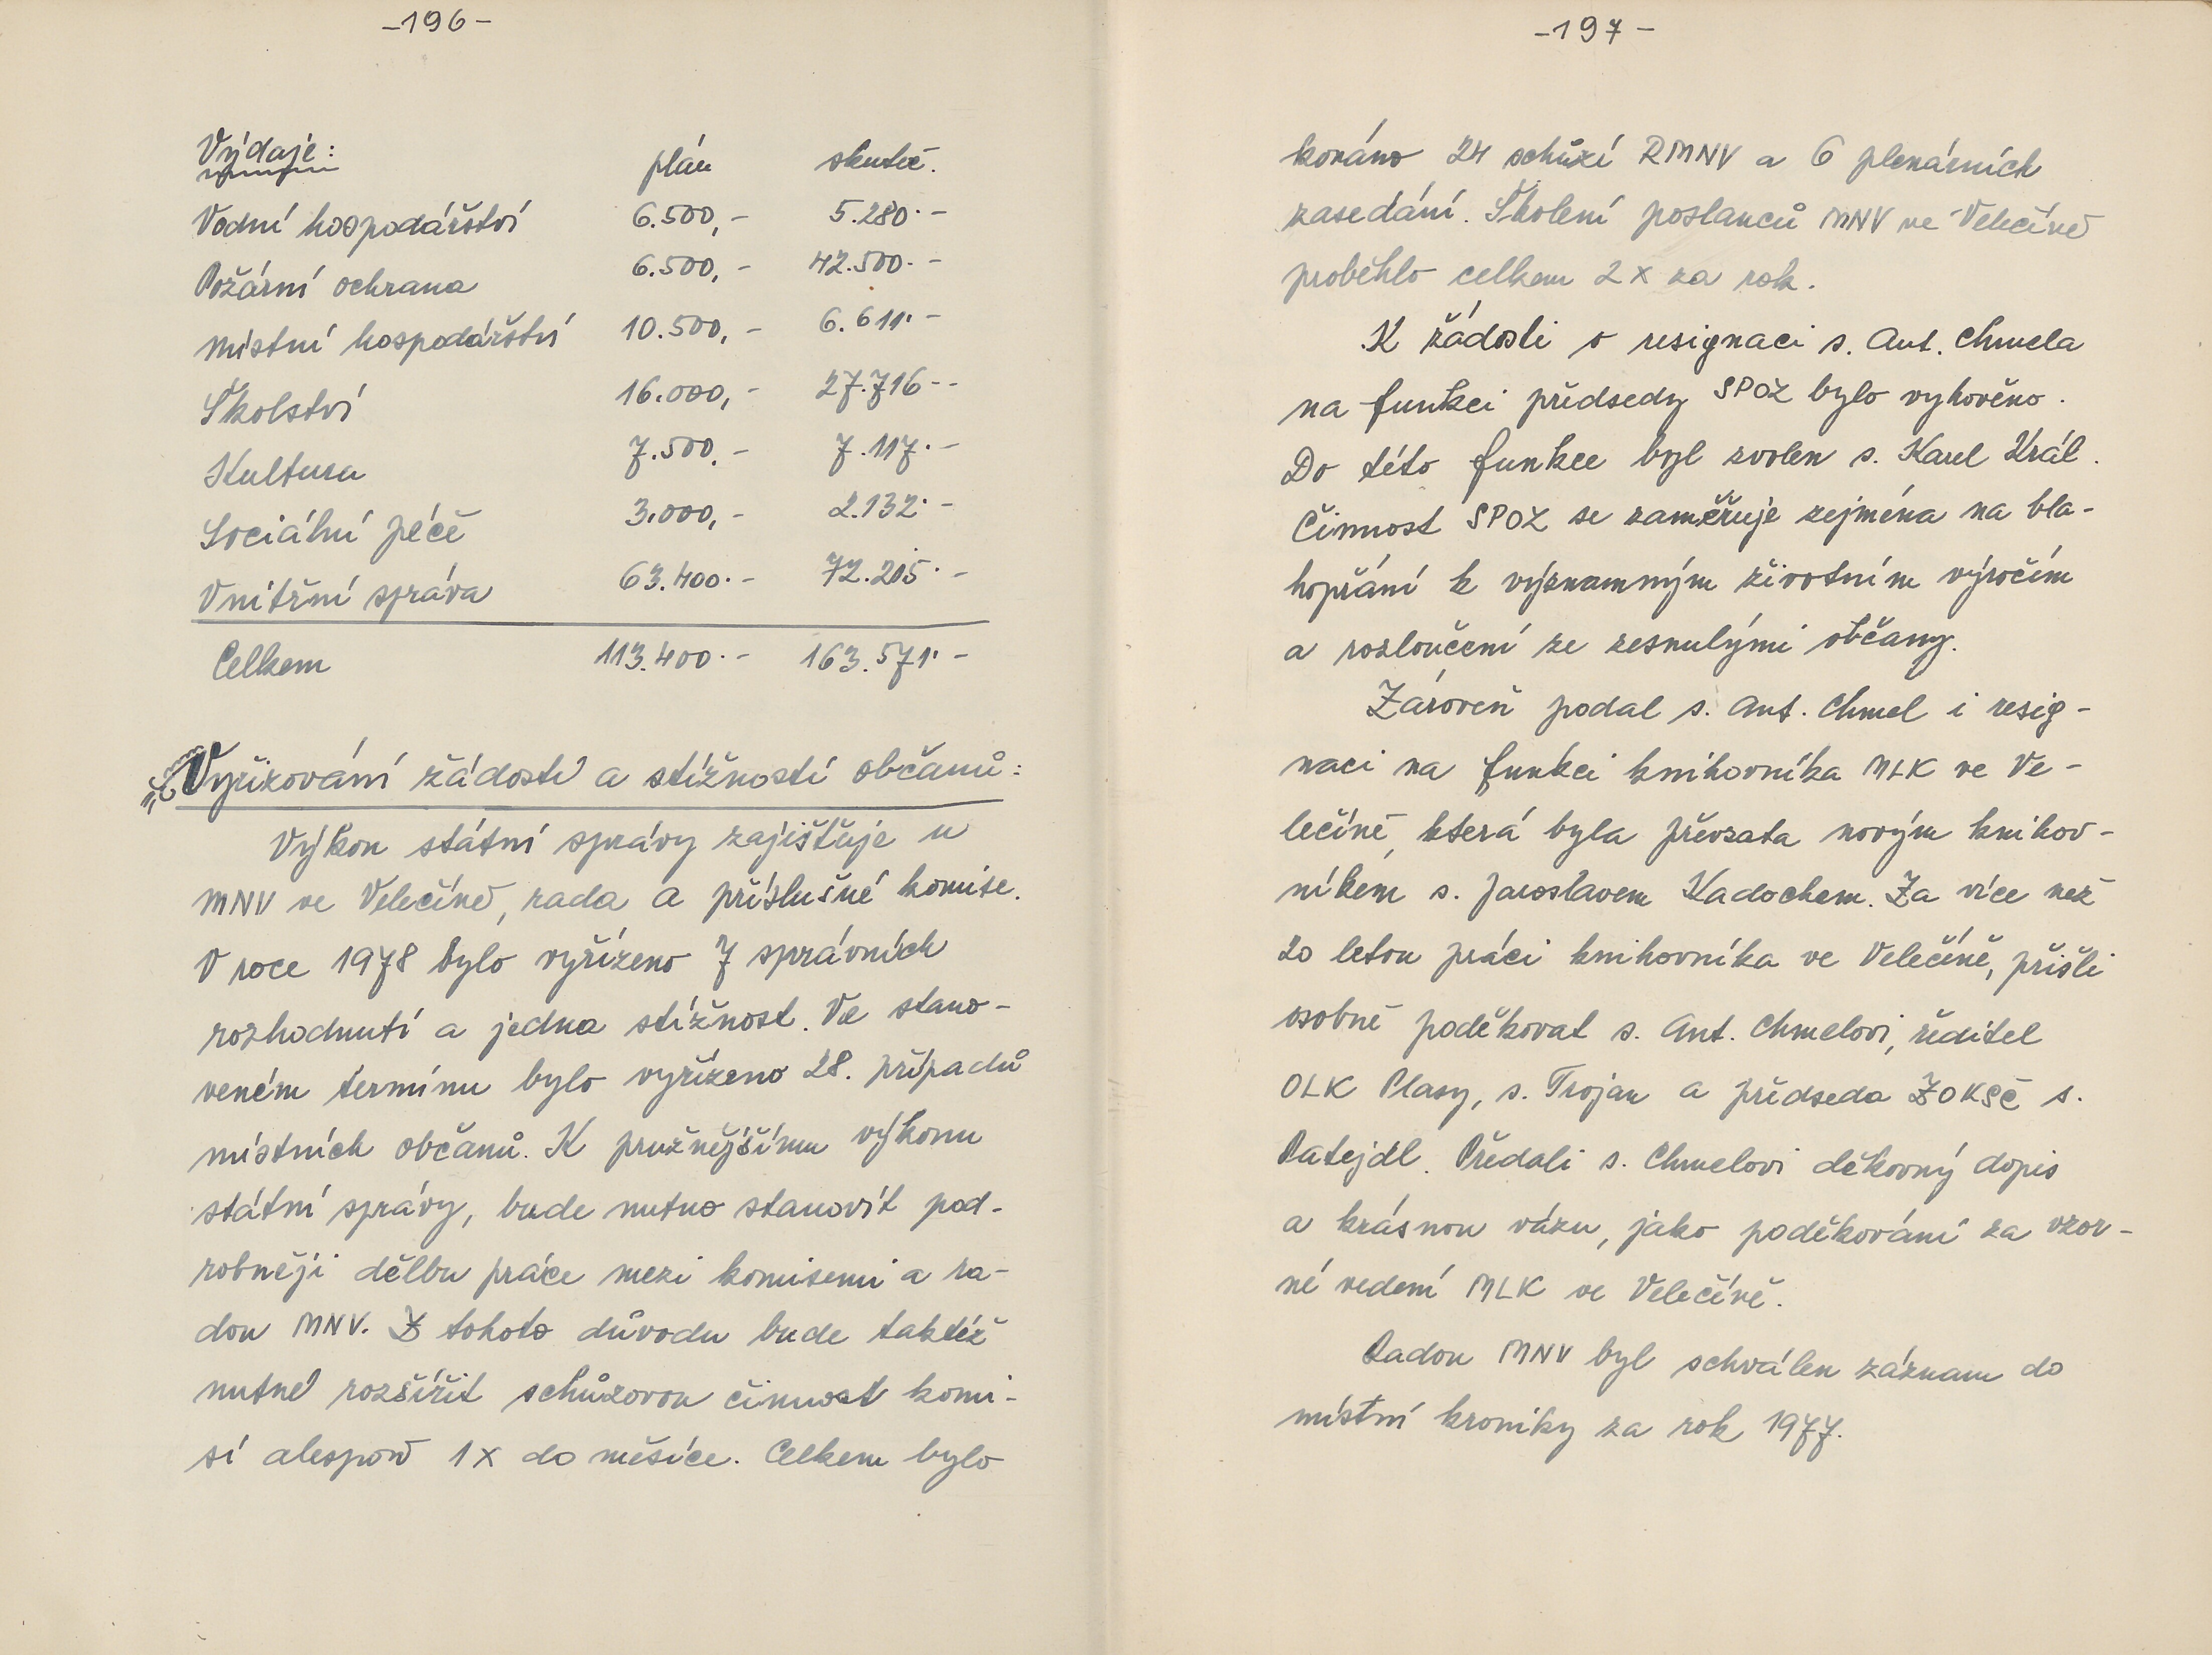 -196-
Výdaje: plán skuteč.
Vodní hospodářství 6.500,- 5.280.-
Požární ochrana 6.500,- 42.500.-
Místní hospodářství 10.500,- 6.611.-
Školství 16.000,- 27.716.-
Kultura 7.500.- 7.117.-
Sociální péče 3.000,- 2.132.-
Vnitřní správa 63.400.- 72.215.-
Celkem 113.400.- 163.571.-
Vyřizování žádostí a stížností občanů:
Výkon státní správy zajišťuje u
MNV ve Velečíně, rada a příslušné komise.
V roce 1978 bylo vyřízeno 7 správních
rozhodnutí a jedna stížnost. Ve stano-
veném termínu bylo vyřízeno 28. případů
místních občanů. K pružnějšímu výkonu
státní správy, bude nutno stanovit pod-
robněji dělbu práce mezi komisemi a ra-
dou MNV. Z tohoto důvodu bude taktéž
nutné rozšířit schůzovou činnost komi-
sí alespoň 1x do měsíce. Celkem bylo
-197-
konáno 24 schůzí RMNV a 6 plenárních
zasedání. Školení poslanců MNV ve Velečíně
proběhlo celkem 2x za rok.
K žádosti o resignaci s. Ant. Chmela
na funkci předsedy SPOZ bylo vyhověno.
Do této funkce byl zvolen s. Karel Král.
Činnost SPOZ se zaměřuje zejména na bla-
hopřání k významným životním výročím
a rozloučení ze zesnulými občany.
Zároveň podal s. Ant. Chmel i resig-
naci na funkci knihovníka MLK ve Ve-
lečíně, která byla převzata novým knihov-
níkem s. Jaroslavem Kadochem. Za více než
20 letou práci knihovníka ve Velečíně, přišli
osobně poděkovat s. Ant. Chmelovi, ředitel
OLK Plasy, s. Trojan a předseda ZOKSČ s.
Patejdl. Předali s. Chmelovi děkovný dopis
a krásnou vázu, jako poděkování za vzor-
né vedení MLK ve Velečíně.
Radou MNV byl schválen záznam do
místní kroniky za rok 1977.